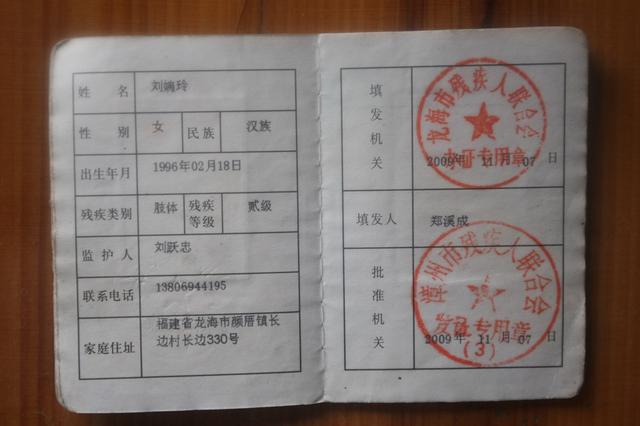 姓名 刘婉玲
性别 女 民族 汉族
出生年月 1996年02月18日
残疾类别 肢体 残疾等级 贰级
监护人 刘跃忠
联系电话 13806944195
家庭住址 福建省龙海市颜厝镇长
边村长边330号
填发机关
龙海市残疾人联合会
办证专用章
2009年 11月 07日
填发人 郑溪成
批准机关
漳州市残疾人联合会
发证专用章
(3)
2009年 11月 07日